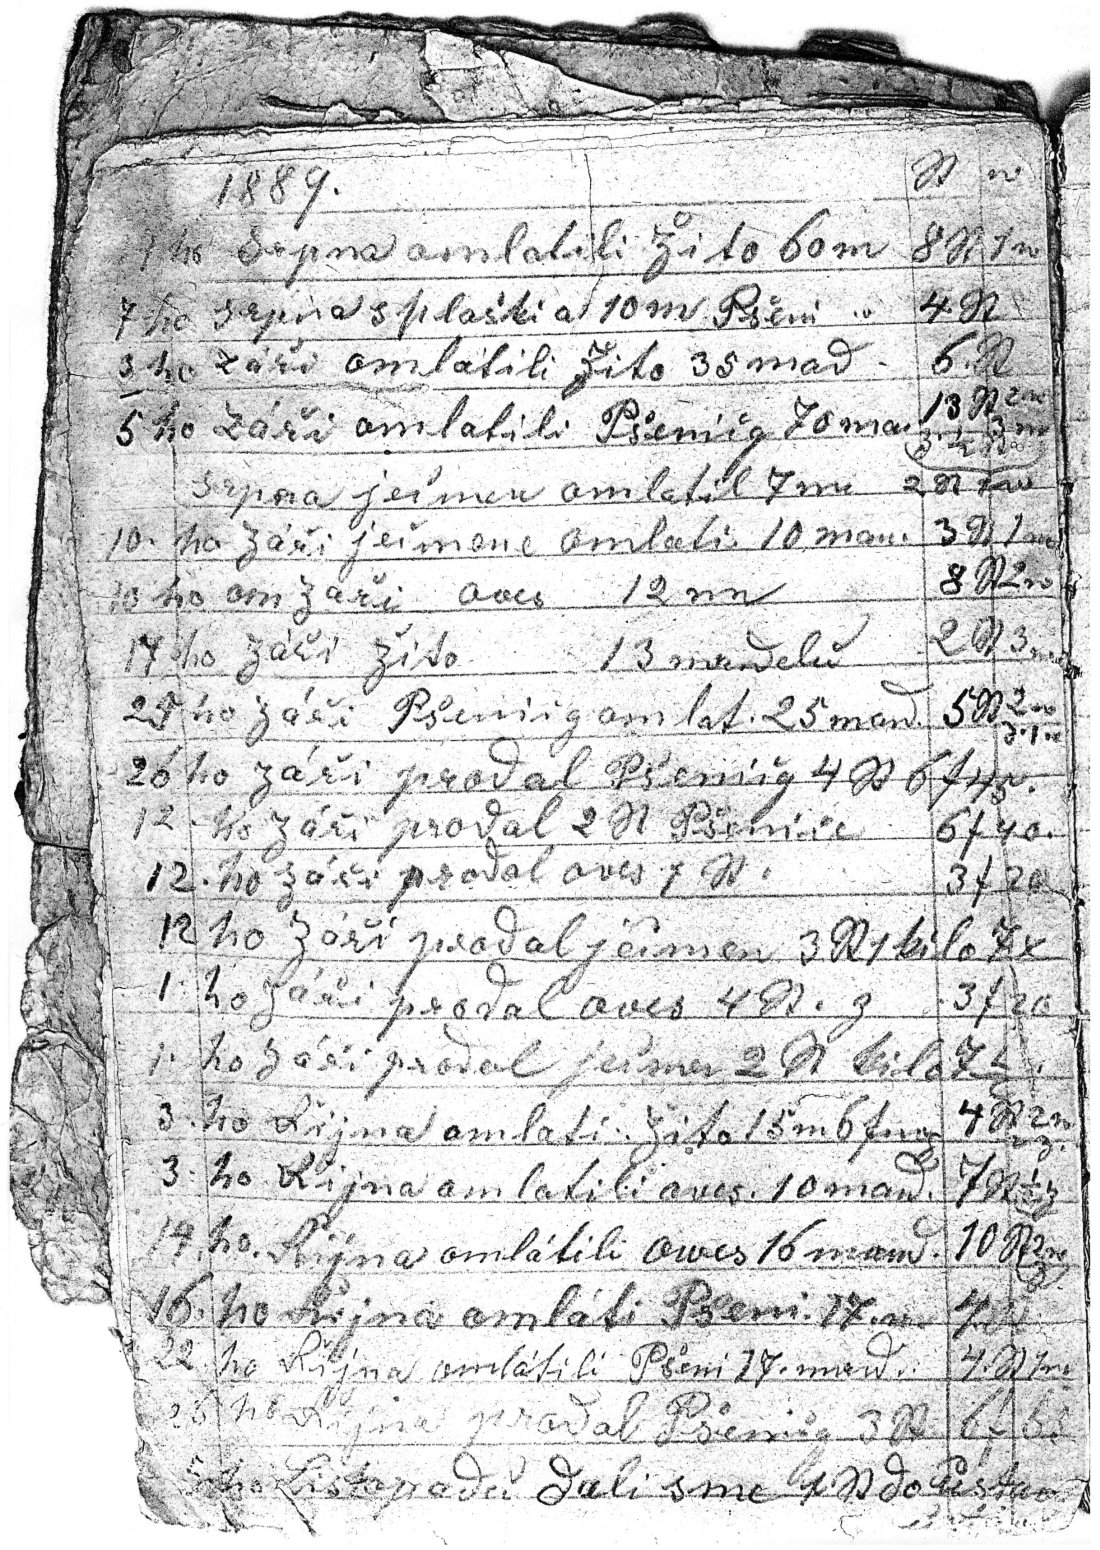 1889. N w
7 ho Srpna omlatili Žito 60 m 8 N 1 w
7. ho srpna s plaški a 10 m Pšeni 4 N
3 ho Záři omlátili Žito 35 mad. 6. N
5 ho Záři omlatili Pšeniig 70 ma. 13 N 2 w
Srpna ječmen omlatil 7 m 2 N 1 w
10. ho Záři ječmene omlati. 10 man. 3 N 1 w
10 ho om Zaři oves 12 m 8 N 2 w
17 ho Záři žito 13 mandelů 2 N 3
25 ho Záři Pšeniig omlat. 25 mand. 5 N 2 w
26 ho Záři prodal Pšeniig 4 N 6 f 45.
12. ho Záři prodal 2 N Pšenice 6 f 40.
12. ho Záři prodal oves 1 N. 3 f 20
12 ho Záři prodal ječmen 3 N 1 kilo 7 x
1. ho Záři prodal oves 4 N. z 3 f 20
1. ho Záři prodal ječmen 2 N kilo 7
3. ho Řijna omlati. Žito 15 m 6 4 N 2 w
3. ho Řijna omlatili oves. 10 mand. 7 N
14. ho. Řijna omlátili owes 16 mand. 10 N 2 w
16. ho Řijna omláti Pšeni. 17. m 4 N
22. ho Řijna omlátili Pšeni 17. mand. 4. N 1 w
26 ho Řijna prodal Pšeniig 3 N 6 f
5 ho Listopadu Dali sme 1 N do